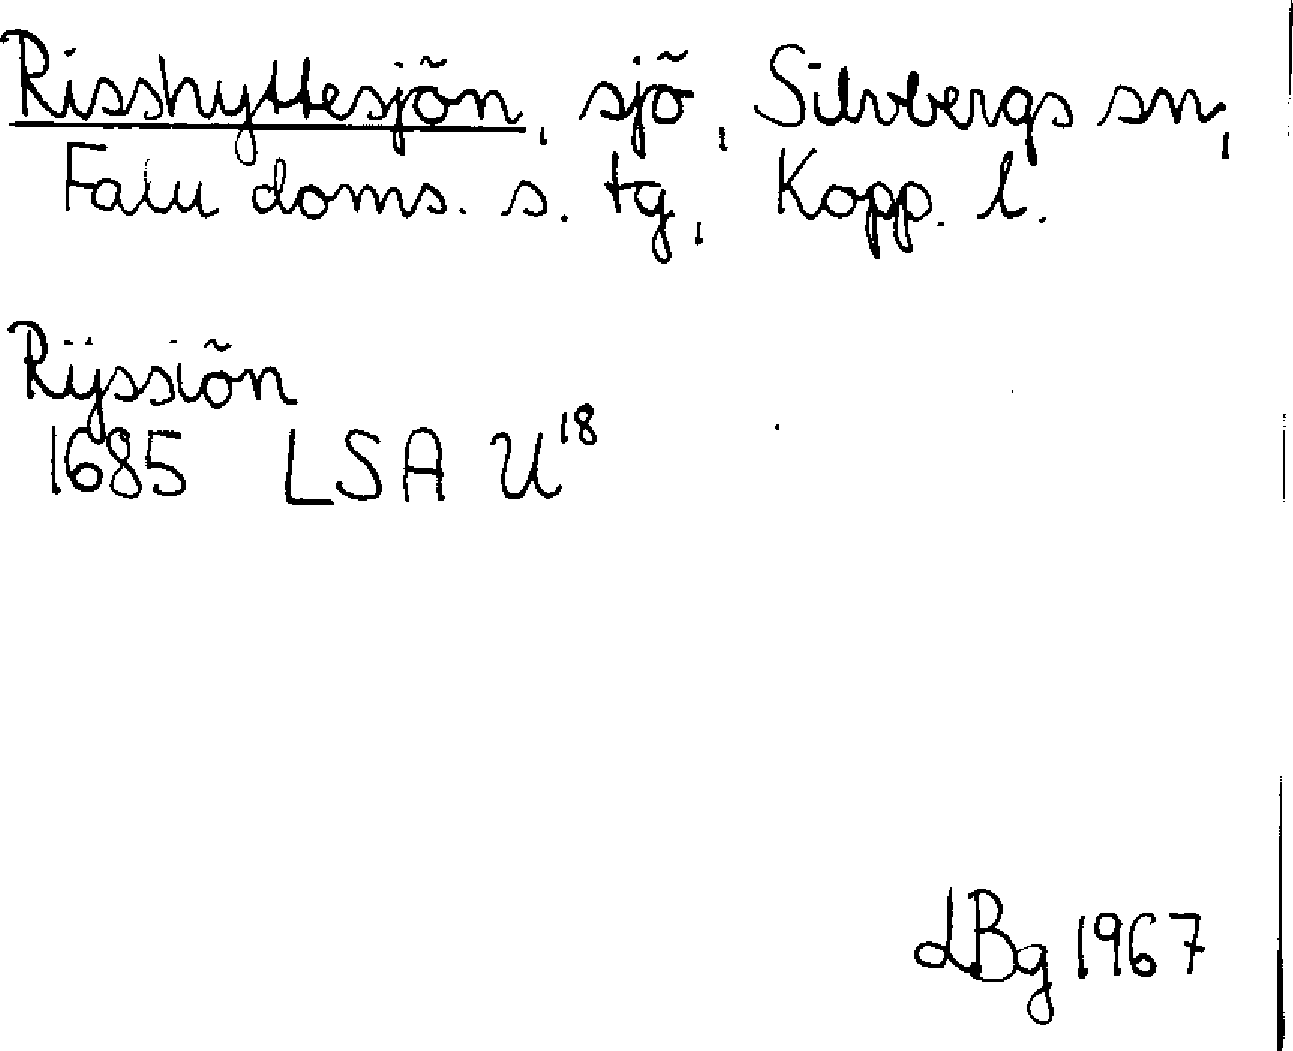 Risshyttesjön, sjö, Silvbergs sn,
Falu doms. s. tg, Kopp. l.
Rijssiön
1685 LSA U18
LBg 1967